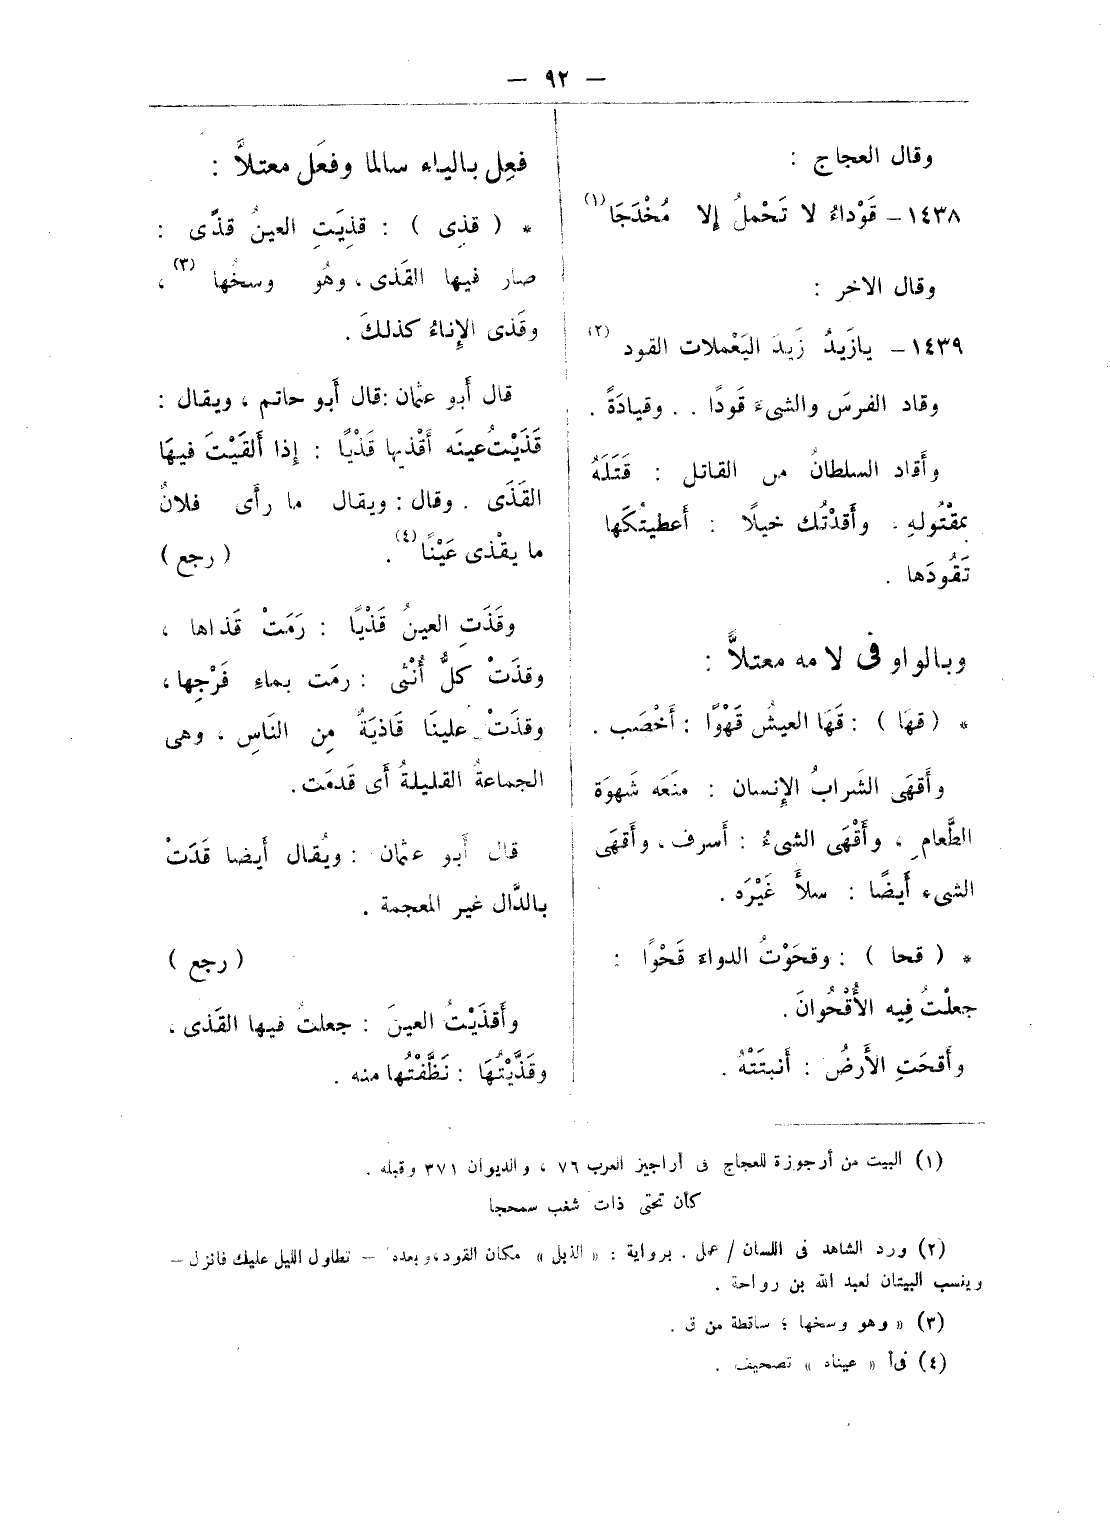 — ٩٢ —
وقال العجاج :
١٤٣٨ – قَوْداءُ لا تَحْملُ إلا مُخْدَجَا (١)
وقال الاخر :
١٤٣٩ – يازَيدُ زَيدَ اليَعْملات القود (٢)
وقاد الفرسَ والشىءَ قَودًا . . وقيادَةً .
وأَقاد السلطانُ من القاتل : قَتَلَهُ
بمقْتُولهِ . وأَقدْتُك خيلًا : أَعطيتُكَها
تَقُودَها .
وبالواو فى لامه معتلاًّ :
* ( قهَا ) : قَهَا العيشُ قَهْوًا : أَخْصَب .
وأَقهَى الشَرابُ الإنسان : منَعَه شَهوَة
الطَّعام ، وأَقْهَى الشىءُ : أَسرف ، وأَقهَى
الشىء أَيضًا : سلأَ غَيْرَه .
* ( قحا ) : وقحَوْتُ الدواءَ قَحْوًا :
جعلْتُ فِيه الأُقْحُوانَ .
وأَقحَتِ الأَرضُ : أَنبتَتْهُ .
فعِل بالياء سالما وفعَل معتلاًّ :
* ( قذِى ) : قذِيَتِ العينُ قذًى :
صار فيها القَذى ، وهُو وسخُها (٣) ،
وقَذى الإِناءُ كذلكَ .
قال أَبو عثمان : قال أَبو حاتم ، ويقال :
قَذَيْتُ عينَه أَقْذيها قَذْيًا : إذا أَلقَيْتَ فيهَا
القَذَى . وقال : ويقال ما رأَى فلانٌ
ما يقْذى عَيْنًا (٤) . ( رجع )
وقَذَتِ العينُ قَذْيًا : رَمَتْ قَذاها ،
وقذَتْ كلُّ أُنْثى : رمَت بماءِ فَرْجِها ،
وقذَتْ علينَا قَاذيَةٌ مِن النَاسِ ، وهى
الجماعةُ القليلةُ أَى قَدمَت .
قال أَبو عثمان : ويُقال أَيضا قَدَتْ
بالدَّال غير المعجمة .
( رجع )
وأَقذَيْتُ العينَ : جعلتُ فيها القَذى ،
وقَذَّيْتُهَا : نَظَّفْتُها منه .
(١) البيت من أرجوزة للعجاج فى أراجيز العرب ٧٦ ، والديوان ٣٧١ وقبله .
كأن تحتى ذات شغب سمحجا
(٢) ورد الشاهد فى اللسان / عمل . برواية : « الذبل » مكان القود ، وبعده – تطاول الليل عليك فانزل –
وينسب البيتان لعبد الله بن رواحة .
(٣) « وهو وسخها ؛ ساقطة من ق .
(٤) فى أ « عيناه » تصحيف .